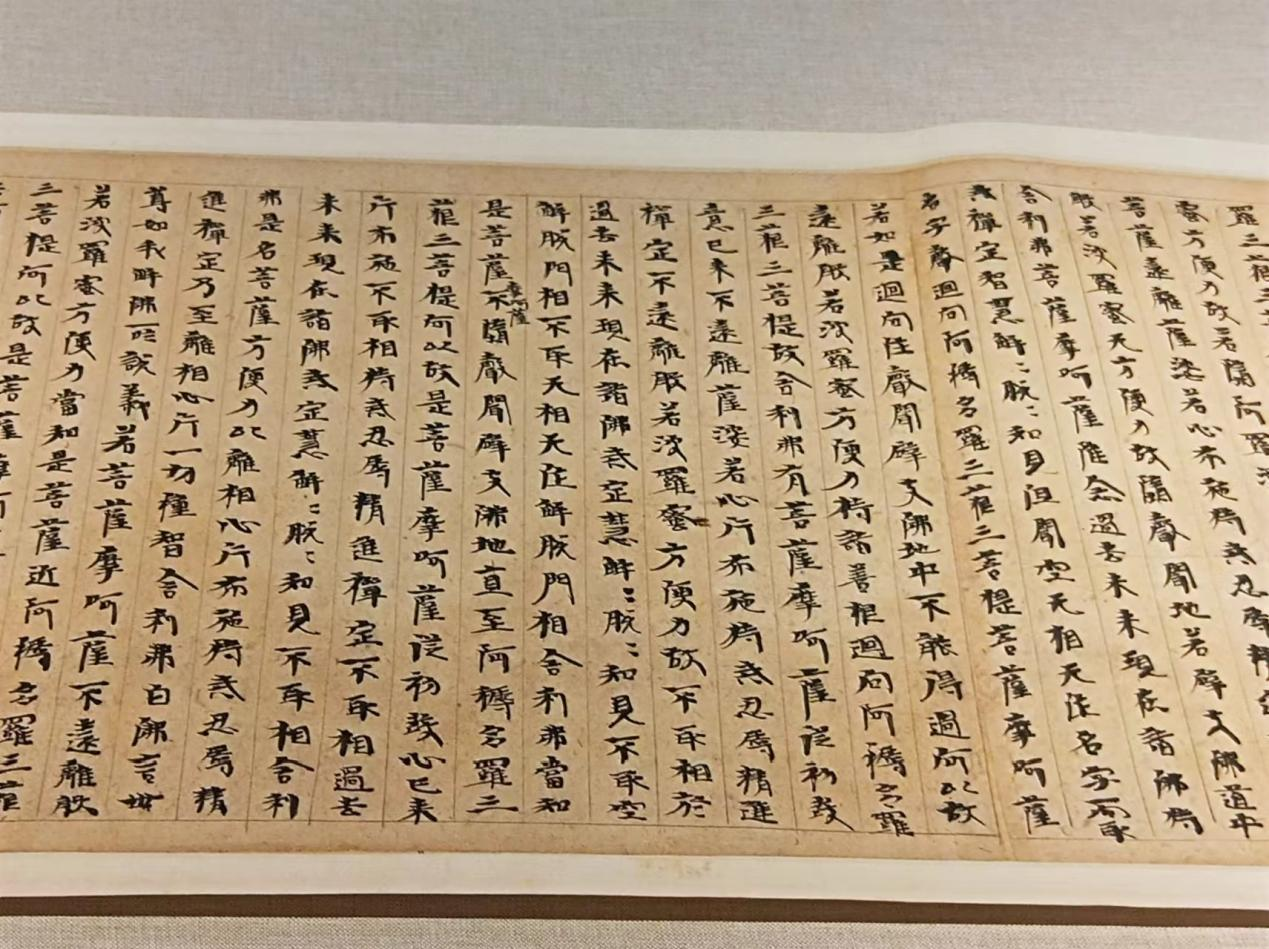 羅三藐三
蜜方便力故若隨阿羅
菩薩遠離薩婆若心布施持戒忍辱精
般若波羅蜜无方便力故隨聲聞地若辟支佛道中
舍利弗菩薩摩訶薩雖念過去未來現在諸佛持
戒禪定智慧解〻脫〻知見但聞空无相无作名字而取
名字聲迴向阿耨多羅三藐三菩提菩薩摩訶薩
若如是迴向住聲聞辟支佛地中不能得過何以故
遠離般若波羅蜜方便力持諸善根迴向阿耨多羅
三藐三菩提故舍利弗有菩薩摩訶薩從初發
意已來不遠離薩婆若心行布施持戒忍辱精進
禪定不遠離般若波羅蜜方便力故不取相於
過去未來現在諸佛戒定慧解〻脫〻知見不取空
解脫門相不取无相无作解脫門相舍利弗當知
是菩薩摩訶薩不隨聲聞辟支佛地直至阿耨多羅三
藐三菩提何以故是菩薩摩訶薩從初發心已來
行布施不取相持戒忍辱精進禪定不取相過去
未來現在諸佛戒定慧解〻脫〻知見不取相舍利
弗是名菩薩方便力以離相心行布施持戒忍辱精
進禪定乃至離相心行一切種智舍利弗白佛言世
尊如我解佛所說義若菩薩摩訶薩不遠離般
若波羅蜜方便力當知是菩薩近阿耨多羅三藐
三菩提何以故是菩薩摩訶